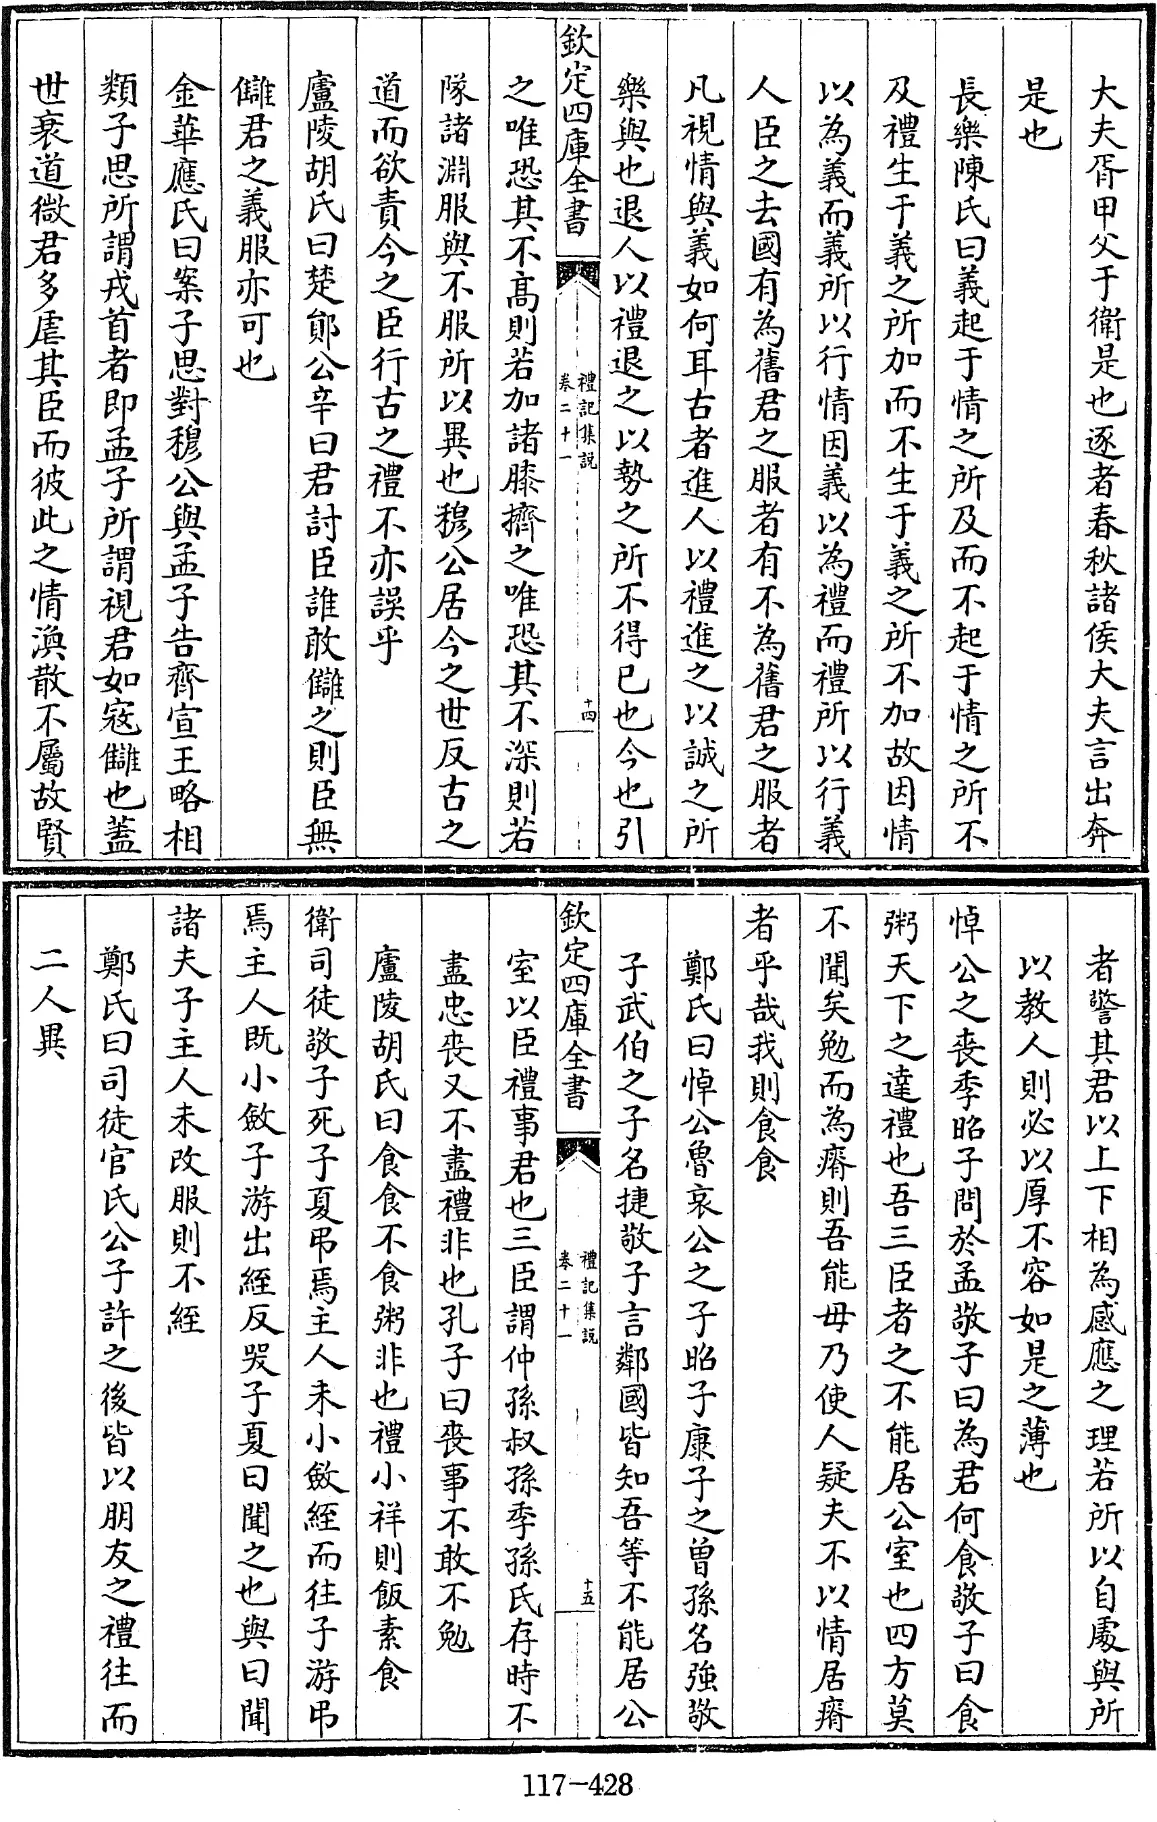 大夫胥甲父于衛是也逐者春秋諸侯大夫言出奔
是也
長樂陳氏曰義起于情之所及而不起于情之所不
及禮生于義之所加而不生于義之所不加故因情
以為義而義所以行情因義以為禮而禮所以行義
人臣之去國有為舊君之服者有不為舊君之服者
凡視情與義如何耳古者進人以禮進之以誠之所
樂與也退人以禮退之以勢之所不得已也今也引
欽定四庫全書
禮記集說
卷二十一
十四
之唯恐其不高則若加諸膝擠之唯恐其不深則若
隊諸淵服與不服所以異也穆公居今之世反古之
道而欲責今之臣行古之禮不亦誤乎
廬陵胡氏曰楚鄖公辛曰君討臣誰敢讎之則臣無
讎君之義服亦可也
金華應氏曰案子思對穆公與孟子告齊宣王略相
類子思所謂戎首者即孟子所謂視君如寇讎也蓋
世衰道微君多虐其臣而彼此之情渙散不屬故賢
者警其君以上下相為感應之理若所以自處與所
以教人則必以厚不容如是之薄也
悼公之喪季昭子問於孟敬子曰為君何食敬子曰食
粥天下之達禮也吾三臣者之不能居公室也四方莫
不聞矣勉而為瘠則吾能毋乃使人疑夫不以情居瘠
者乎哉我則食食
鄭氏曰悼公魯哀公之子昭子康子之曾孫名強敬
子武伯之子名捷敬子言鄰國皆知吾等不能居公
欽定四庫全書
禮記集說
卷二十一
十五
室以臣禮事君也三臣謂仲孫叔孫季孫氏存時不
盡忠喪又不盡禮非也孔子曰喪事不敢不勉
廬陵胡氏曰食食不食粥非也禮小祥則飯素食
衛司徒敬子死子夏弔焉主人未小斂絰而往子游弔
焉主人既小斂子游出絰反哭子夏曰聞之也與曰聞
諸夫子主人未改服則不絰
鄭氏曰司徒官氏公子許之後皆以朋友之禮往而
二人異
117-428